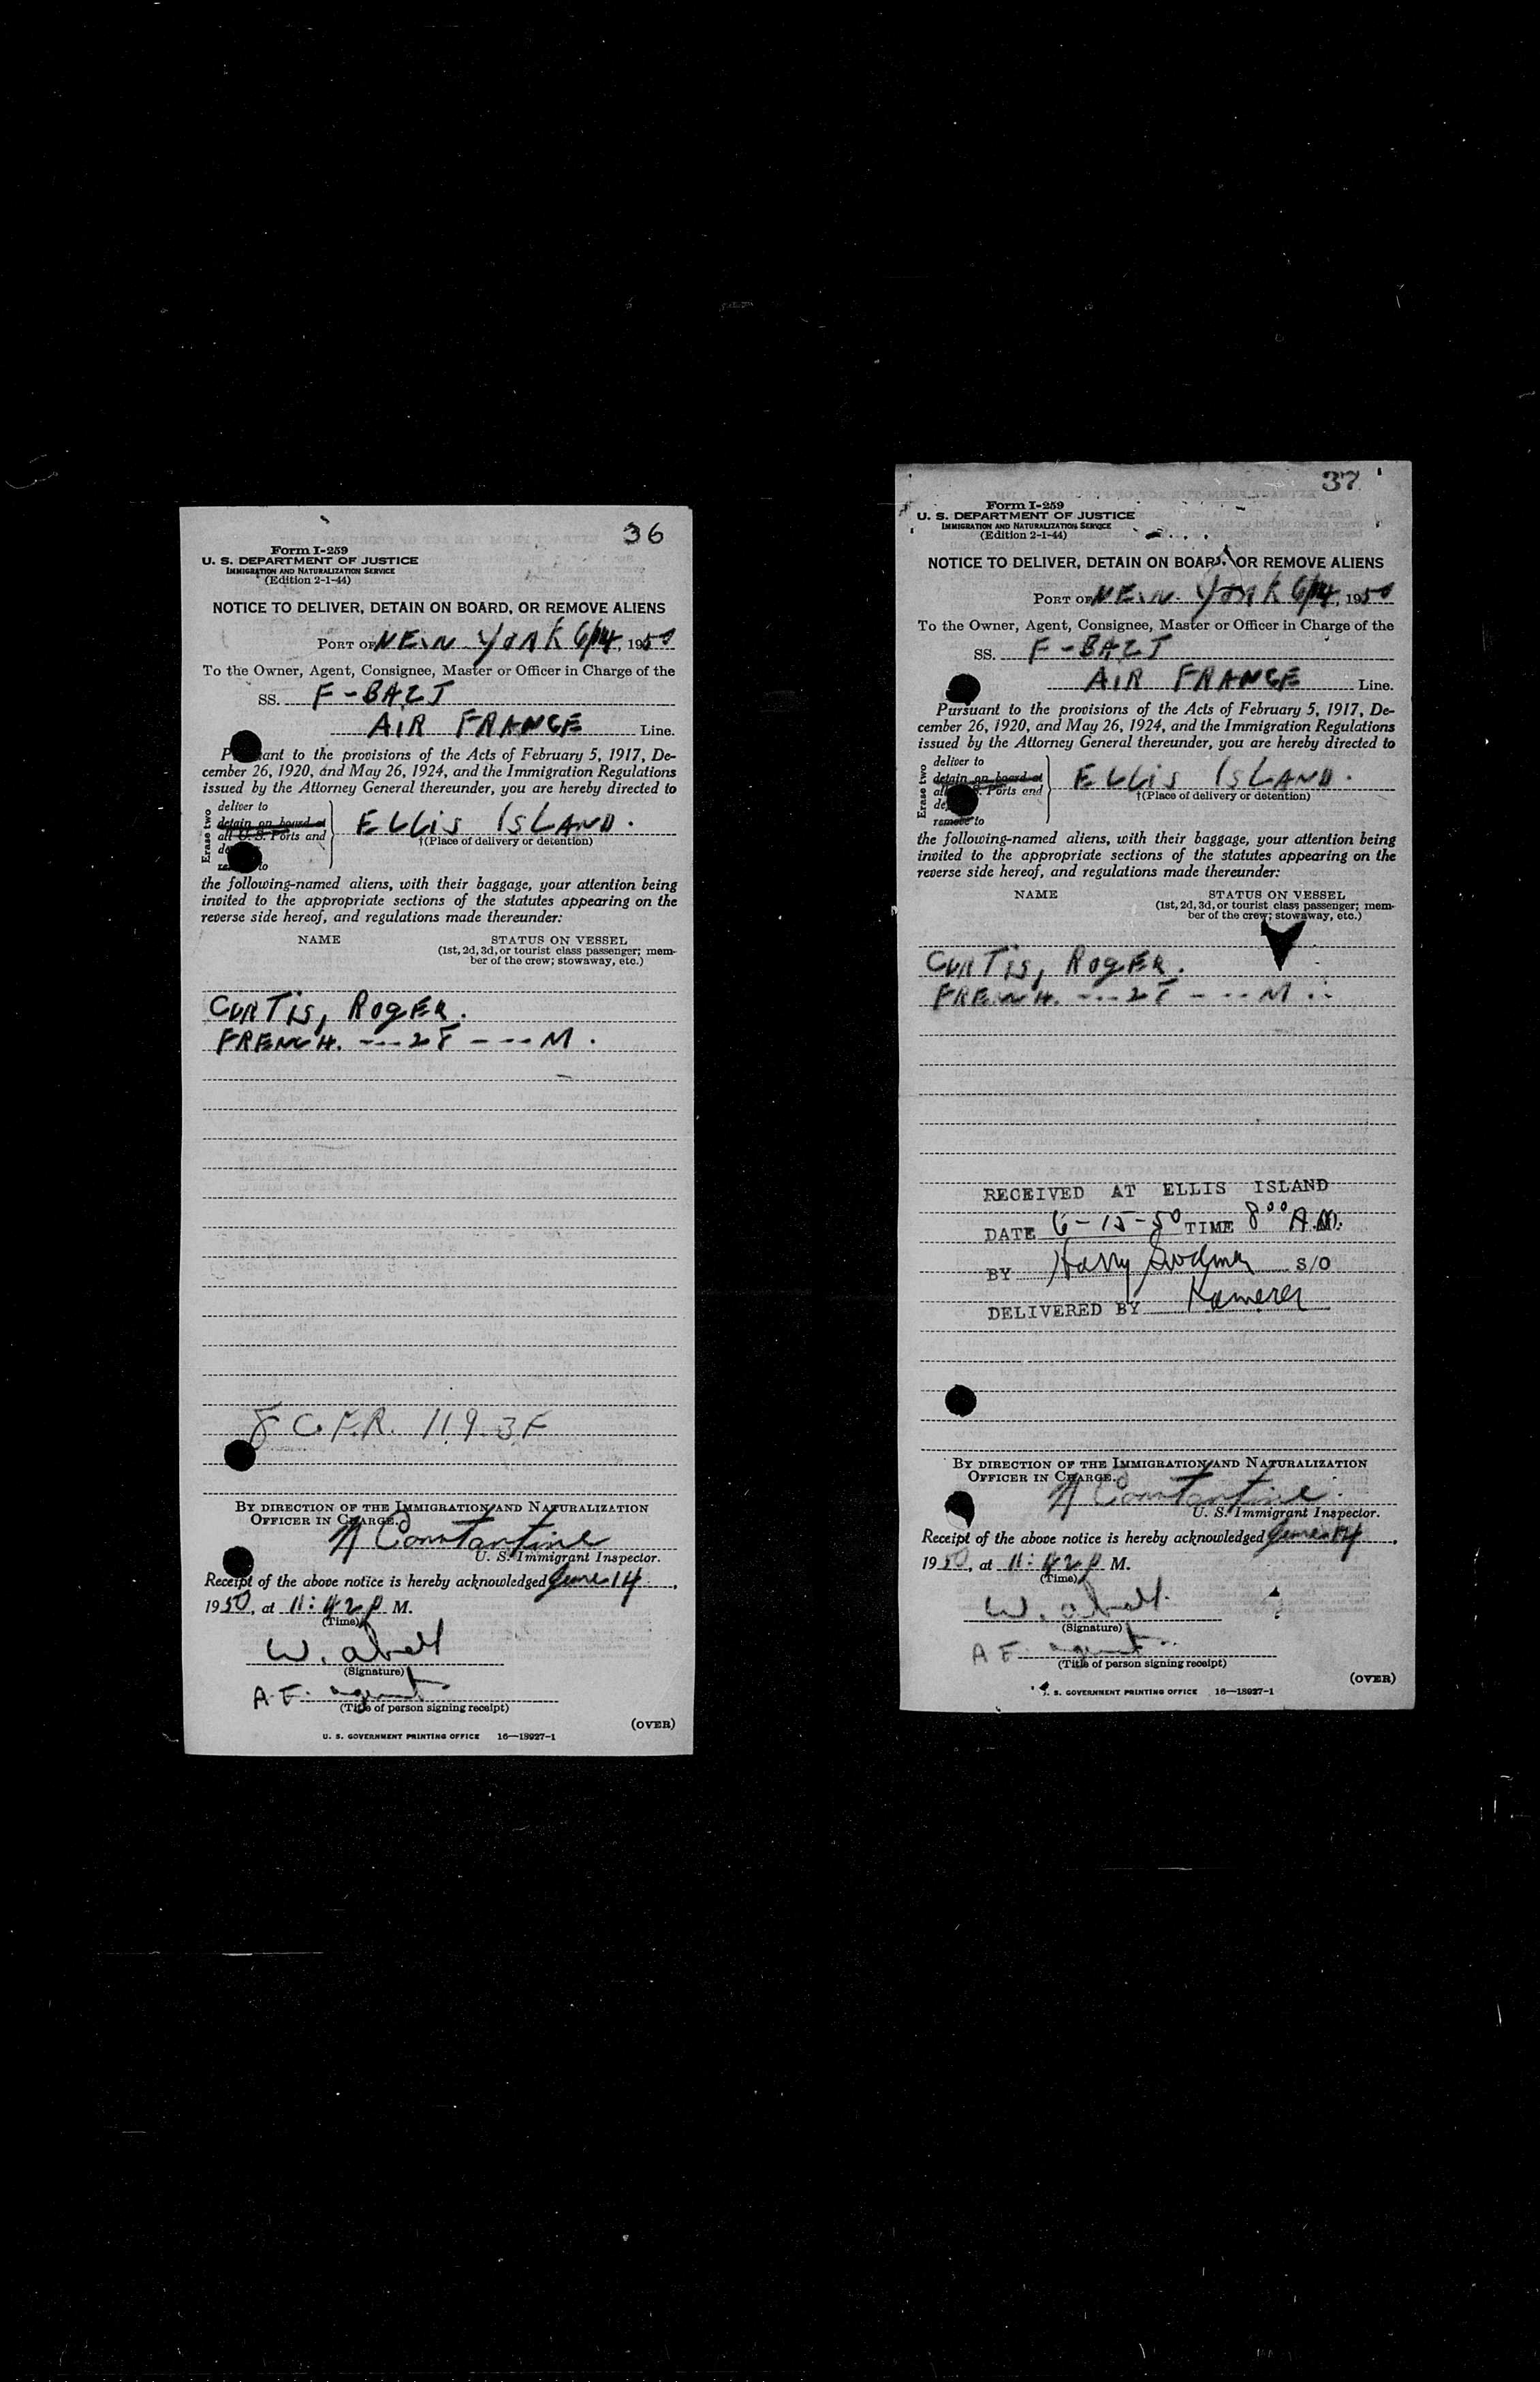 36
Form I-259
U. S. DEPARTMENT OF JUSTICE
IMMIGRATION AND NATURALIZATION SERVICE
(Edition 2-1-44)
NOTICE TO DELIVER, DETAIN ON BOARD, OR REMOVE ALIENS
PORT OF NEW YORK 6/14, 1950
To the Owner, Agent, Consignee, Master or Officer in Charge of the
SS. F-BAZJ
AIR FRANCE Line.
Pursuant to the provisions of the Acts of February 5, 1917, De-
cember 26, 1920, and May 26, 1924, and the Immigration Regulations
issued by the Attorney General thereunder, you are hereby directed to
Erase two
deliver to
detain on board at
all U.S. Ports and
to
ELLIS ISLAND.
†(Place of delivery or detention)
the following-named aliens, with their baggage, your attention being
invited to the appropriate sections of the statutes appearing on the
reverse side hereof, and regulations made thereunder:
NAME STATUS ON VESSEL
(1st, 2d, 3d, or tourist class passenger; mem-
ber of the crew; stowaway, etc.)
CURTIS, ROGER.
FRENCH. ---28---M.
8 C.F.R. 119.3F
BY DIRECTION OF THE IMMIGRATION AND NATURALIZATION
OFFICER IN CHARGE.
N Constantine
U. S. Immigrant Inspector.
Receipt of the above notice is hereby acknowledged June 14,
1950, at 11:42 P M.
(Time)
W. Abell
(Signature)
A.F. agent.
(Title of person signing receipt)
(OVER)
U. S. GOVERNMENT PRINTING OFFICE 16—18927-1
37
Form I-259
U. S. DEPARTMENT OF JUSTICE
IMMIGRATION AND NATURALIZATION SERVICE
(Edition 2-1-44)
NOTICE TO DELIVER, DETAIN ON BOARD, OR REMOVE ALIENS
PORT OF NEW YORK 6/14, 1950
To the Owner, Agent, Consignee, Master or Officer in Charge of the
SS. F-BAZJ
AIR FRANCE Line.
Pursuant to the provisions of the Acts of February 5, 1917, De-
cember 26, 1920, and May 26, 1924, and the Immigration Regulations
issued by the Attorney General thereunder, you are hereby directed to
Erase two
deliver to
detain on board at
all U.S. Ports and
remove to
ELLIS ISLAND.
†(Place of delivery or detention)
the following-named aliens, with their baggage, your attention being
invited to the appropriate sections of the statutes appearing on the
reverse side hereof, and regulations made thereunder:
NAME STATUS ON VESSEL
(1st, 2d, 3d, or tourist class passenger; mem-
ber of the crew; stowaway, etc.)
CURTIS, ROGER.
FRENCH. ---28---M.
RECEIVED AT ELLIS ISLAND
DATE 6-15-50 TIME 8 00 A.M.
BY Harry S/O
DELIVERED BY Kamerer
BY DIRECTION OF THE IMMIGRATION AND NATURALIZATION
OFFICER IN CHARGE.
N Constantine
U. S. Immigrant Inspector.
Receipt of the above notice is hereby acknowledged June 14,
1950, at 11:42 P M.
(Time)
W. Abell.
(Signature)
A F agent
(Title of person signing receipt)
(OVER)
U. S. GOVERNMENT PRINTING OFFICE 16—18927-1